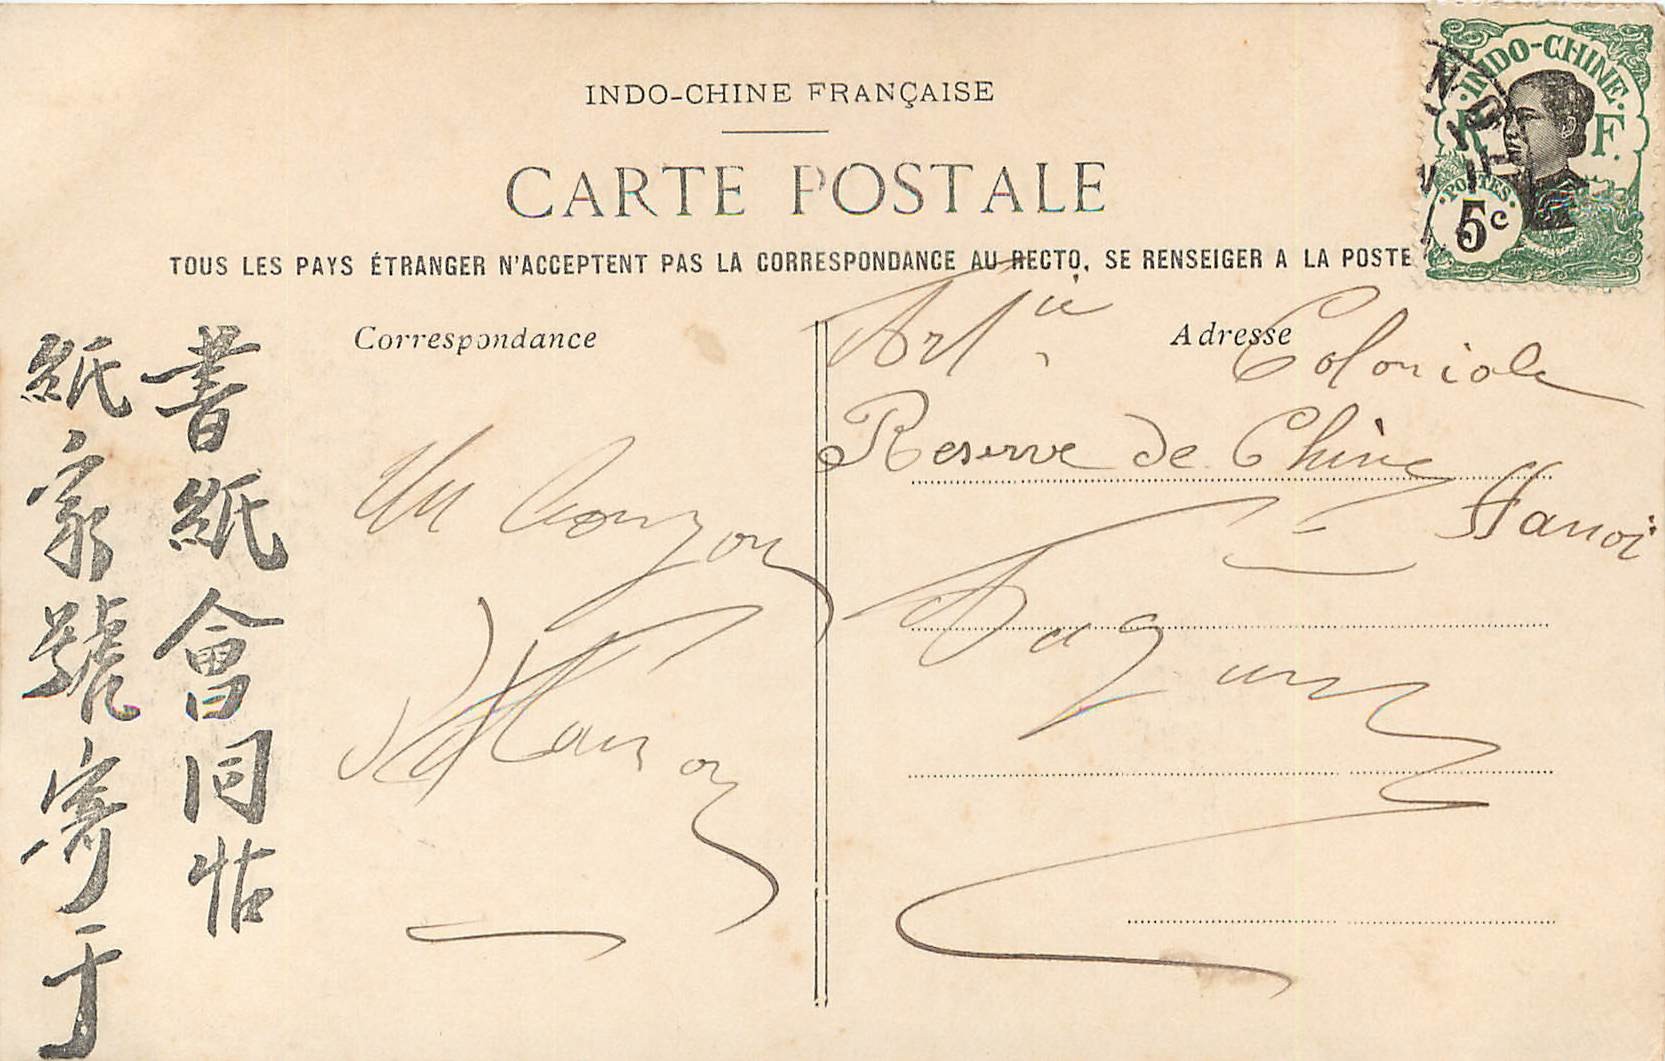 INDO-CHINE FRANÇAISE
CARTE POSTALE
TOUS LES PAYS ÉTRANGER N'ACCEPTENT PAS LA CORRESPONDANCE AU RECTO, SE RENSEIGER A LA POSTE
INDO-CHINE
R F.
POSTES
5c
書紙會同帖
紙家號寄于
Correspondance
Un Bonzon
Hanoi
Adresse
Artie Coloniale
Reserve de Chine
Hanoi